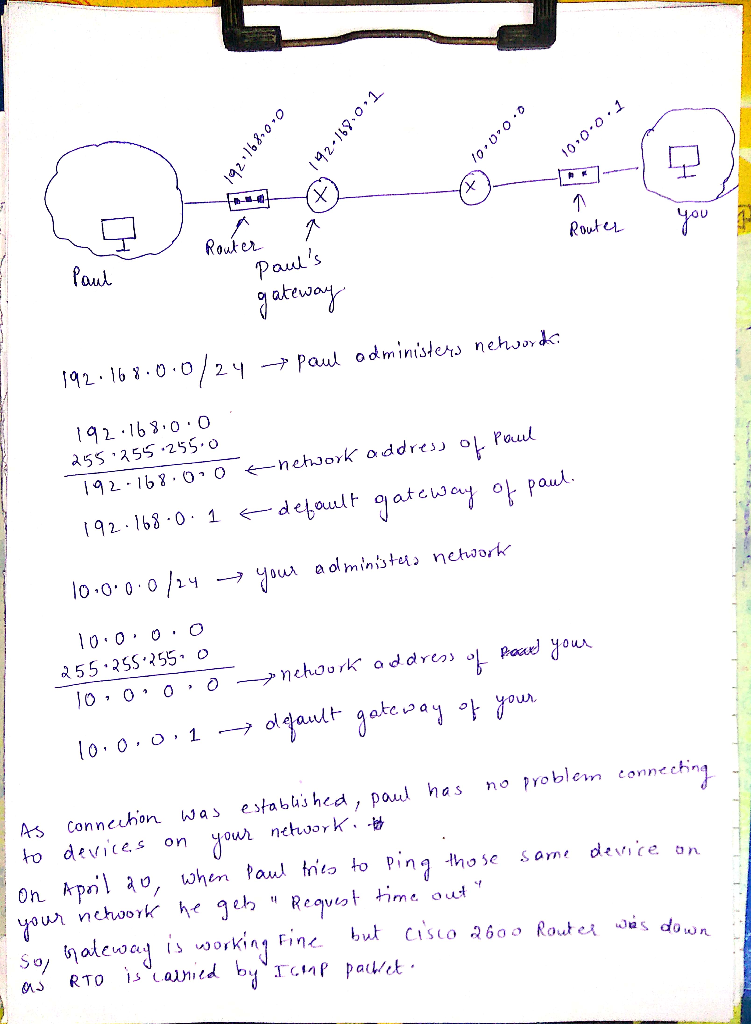 192.168.0.0
192.168.0.1
10.0.0.0
10.0.0.1
Router
Paul's
gateway
Router
you
Paul
192.168.0.0/24 → Paul administers network.
192.168.0.0
255.255.255.0
192.168.0.0 ← network address of Paul
192.168.0.1 ← default gateway of paul.
10.0.0.0/24 → your administers network
10.0.0.0
255.255.255.0
10.0.0.0 → network address of your
10.0.0.1 → default gateway of your
As connection was established, paul has no problem connecting
to devices on your network.
On April 20, when Paul tries to ping those same device on
your network he gets "Request time out"
So, Gateway is working Fine but Cisco 2600 Router was down
as RTO is carried by ICMP packet.